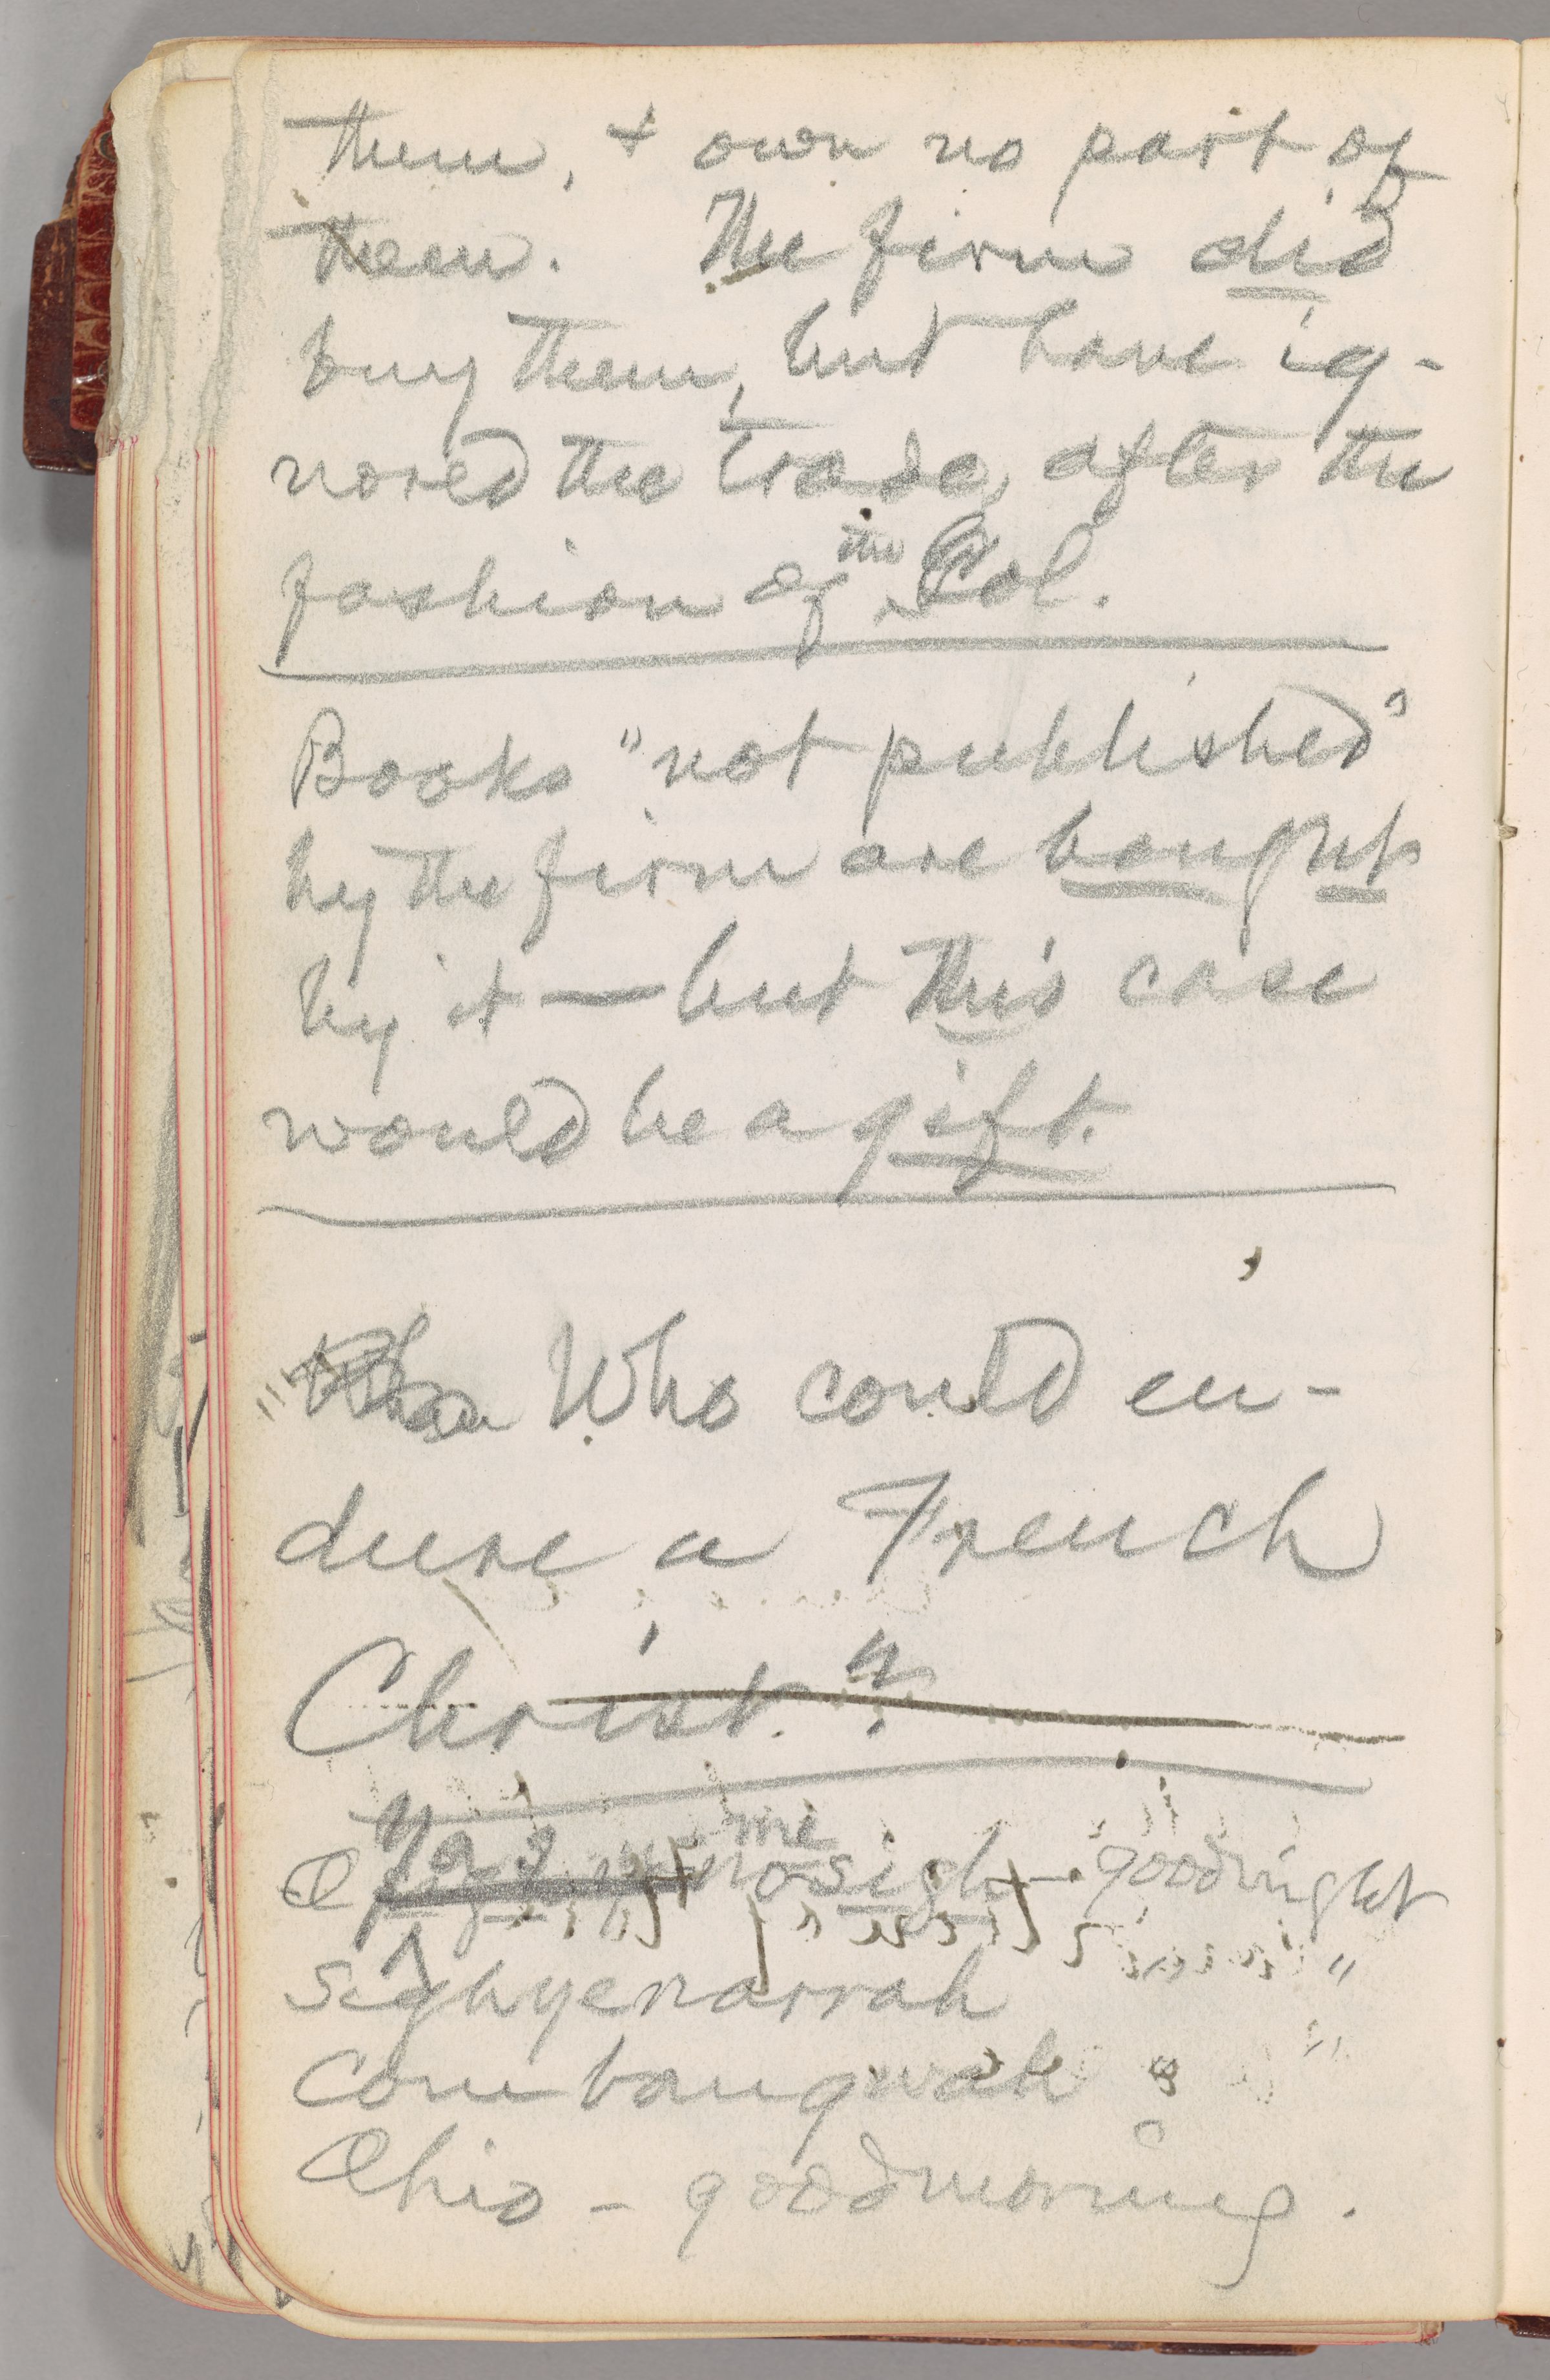 them, + own no part of
them. The firm did
buy them, but have ig-
nored the trade, after the
fashion of the Col.
Books "not published"
by the firm are bought
by it — but this case
would be a gift.
Who could en-
dure a French
Christ?
O yas me nosigh — goodnight
Sighyenarrah "
Combangwah " "
Ohio - goodmorning.